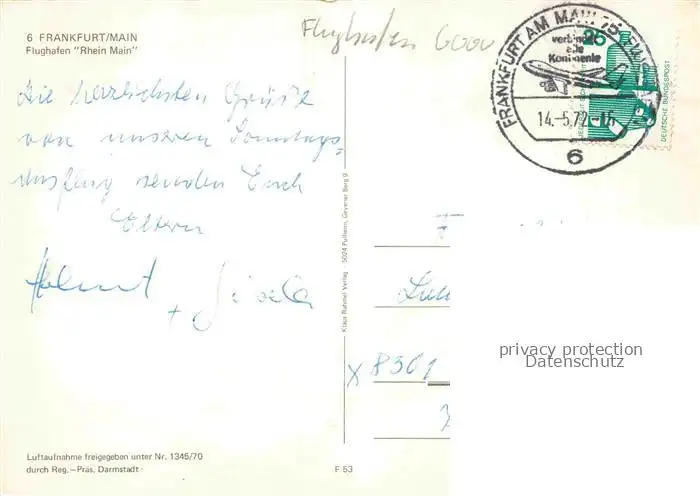 6 FRANKFURT/MAIN
Flughafen "Rhein Main"
Flughafen 6000
Die herzlichsten Grüsse
von unserem Sonntags-
ausflug senden Euch
Eltern
Helmut
+ Gisela
FRANKFURT AM MAIN 75
verbindet
alle
Kontinente
14.-5.72-15
6
25
DEUTSCHE BUNDESPOST
Klaus Rahmel Verlag · 5024 Pulheim, Geyener Berg 9
x 8301
privacy protection
Datenschutz
Luftaufnahme freigegeben unter Nr. 1345/70
durch Reg.-Präs. Darmstadt
F 53